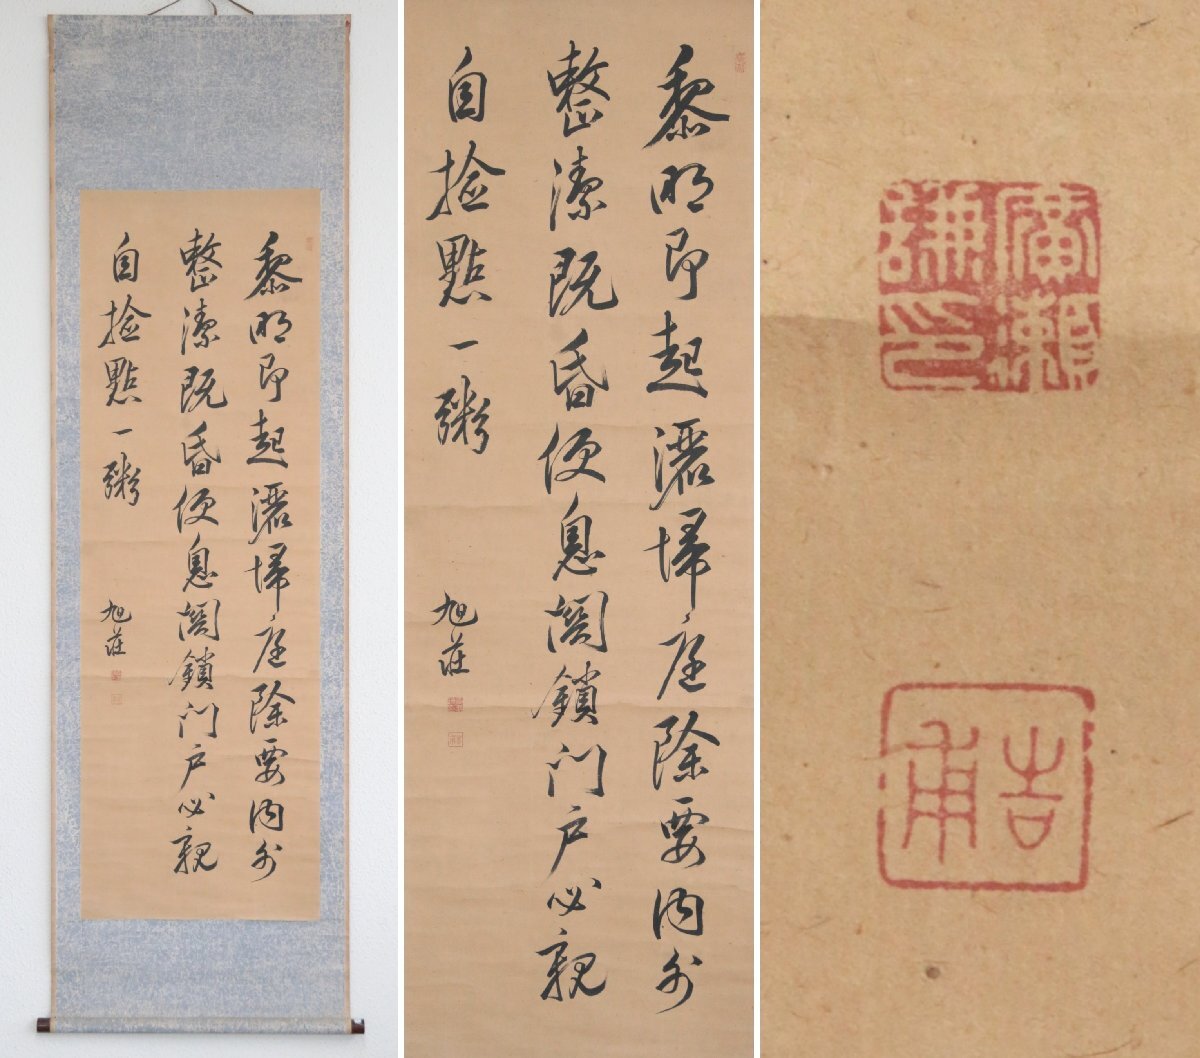 黎明即起灑掃庭除要内外
整潔既昏便息關鎖門戸必親
自撿點一粥
旭荘
黎明即起灑掃庭除要内外
整潔既昏便息關鎖門戸必親
自撿點一粥
旭荘
廣瀬
謙印
吉
甫